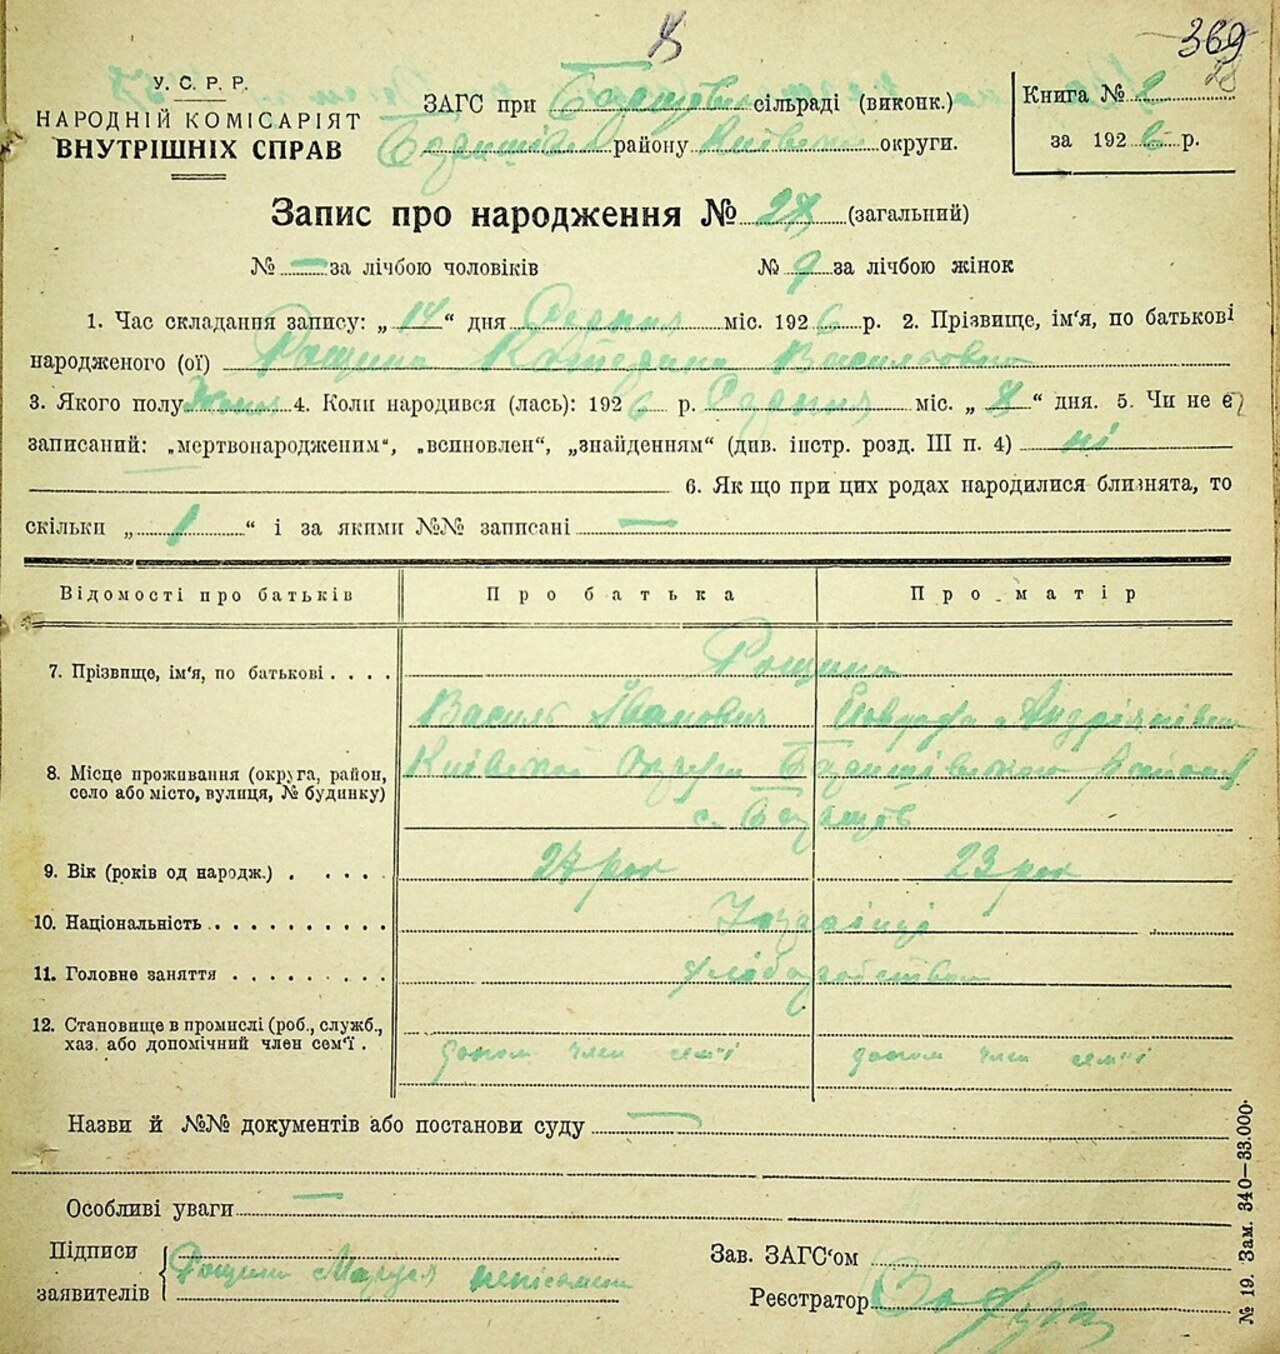 369
28
У. С. Р. Р.
НАРОДНІЙ КОМІСАРІЯТ
ВНУТРІШНІХ СПРАВ
ЗАГС при сільраді (виконк.)
району Київської округи.
Книга № 2
за 1926 р.
Запис про народження № 27 (загальний)
№ — за лічбою чоловіків
№ 9 за лічбою жінок
1. Час складання запису: „ 14 “ дня Серпня міс. 1926 р. 2. Прізвище, ім'я, по батькові
народженого (ої) Рощина Катерина Васильовна
3. Якого полу Жіноч 4. Коли народився (лась): 1926 р. Серпня міс. „ 8 “ дня. 5. Чи не є
записаний: „мертвонародженим“, „всиновлен“, „знайденням“ (див. інстр. розд. III п. 4) ні
6. Як що при цих родах народилися близнята, то
скільки „ 1 “ і за якими №№ записані —
Відомості про батьків Про батька Про матір
7. Прізвище, ім‘я, по батькові . . . . Рощина
Василь Іванович Андріянівна
8. Місце проживання (округа, район, Київської Округи району
село або місто, вулиця, № будинку) с.
9. Вік (років од народж.) . . . . . 27 рок 23 рок
10. Національність . . . . . . . . . . Українці
11. Головне заняття . . . . . . . . хліборобство
12. Становище в промислі (роб., служб.,
хаз. або допомічний член сем‘ї . допом член семʼї допом член семʼї
Назви й №№ документів або постанови суду —
Особливі уваги —
Підписи
заявителів Рощина Маруся неписьмен
Зав. ЗАГС‘ом
Реєстратор
№ 19. Зам. 340—33.000.